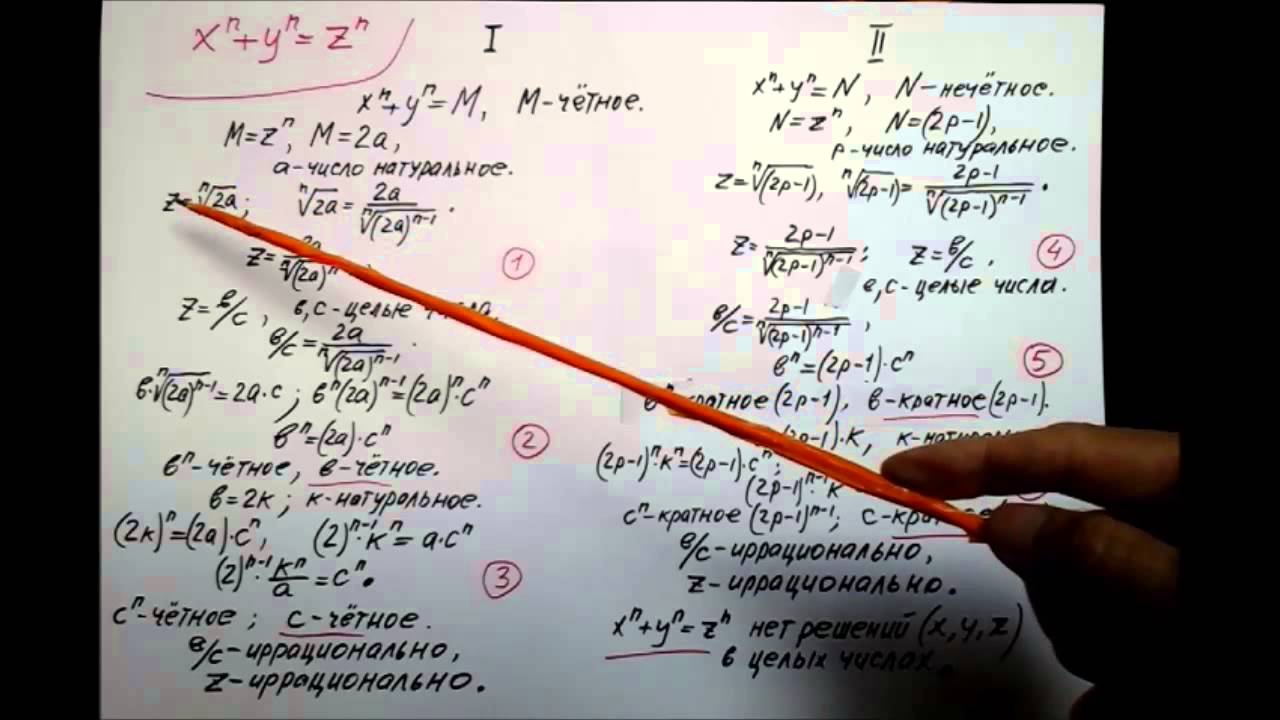 xⁿ+yⁿ=zⁿ
I
xⁿ+yⁿ=M, M-чётное.
M=zⁿ, M=2a,
a-число натуральное.
z=ⁿ√2a; ⁿ√2a=2a/ⁿ√(2a)ⁿ⁻¹.
z=2a/ⁿ√(2a)ⁿ
①
z=в/с, в,с-целые числа.
в/с=2a/ⁿ√(2a)ⁿ⁻¹.
в·ⁿ√(2a)ⁿ⁻¹=2a·с; вⁿ(2a)ⁿ⁻¹=(2a)ⁿсⁿ
вⁿ=(2a)·сⁿ
②
вⁿ-чётное, в-чётное.
в=2к; к-натуральное.
(2к)ⁿ=(2a)·сⁿ, (2)ⁿ⁻¹·кⁿ=a·сⁿ
(2)ⁿ⁻¹·кⁿ/a=сⁿ.
③
сⁿ-чётное; с-чётное.
в/с-иррационально,
z-иррационально.
II
xⁿ+yⁿ=N, N-нечётное.
N=zⁿ, N=(2p-1),
p-число натуральное.
z=ⁿ√(2p-1), ⁿ√(2p-1)=2p-1/ⁿ√(2p-1)ⁿ⁻¹.
z=2p-1/ⁿ√(2p-1)ⁿ⁻¹; z=в/с.
④
в,с-целые числа.
в/с=2p-1/ⁿ√(2p-1)ⁿ⁻¹,
вⁿ=(2p-1)·сⁿ
⑤
вⁿ-кратное (2p-1), в-кратное (2p-1).
p-1)·к,
(2p-1)ⁿ·кⁿ=(2p-1)·сⁿ;
(2p-1)ⁿ⁻¹·к
сⁿ-кратное (2p-1)ⁿ⁻¹; с-кратное
в/с-иррационально,
z-иррационально.
xⁿ+yⁿ=zⁿ нет решений (x,y,z)
в целых числах.